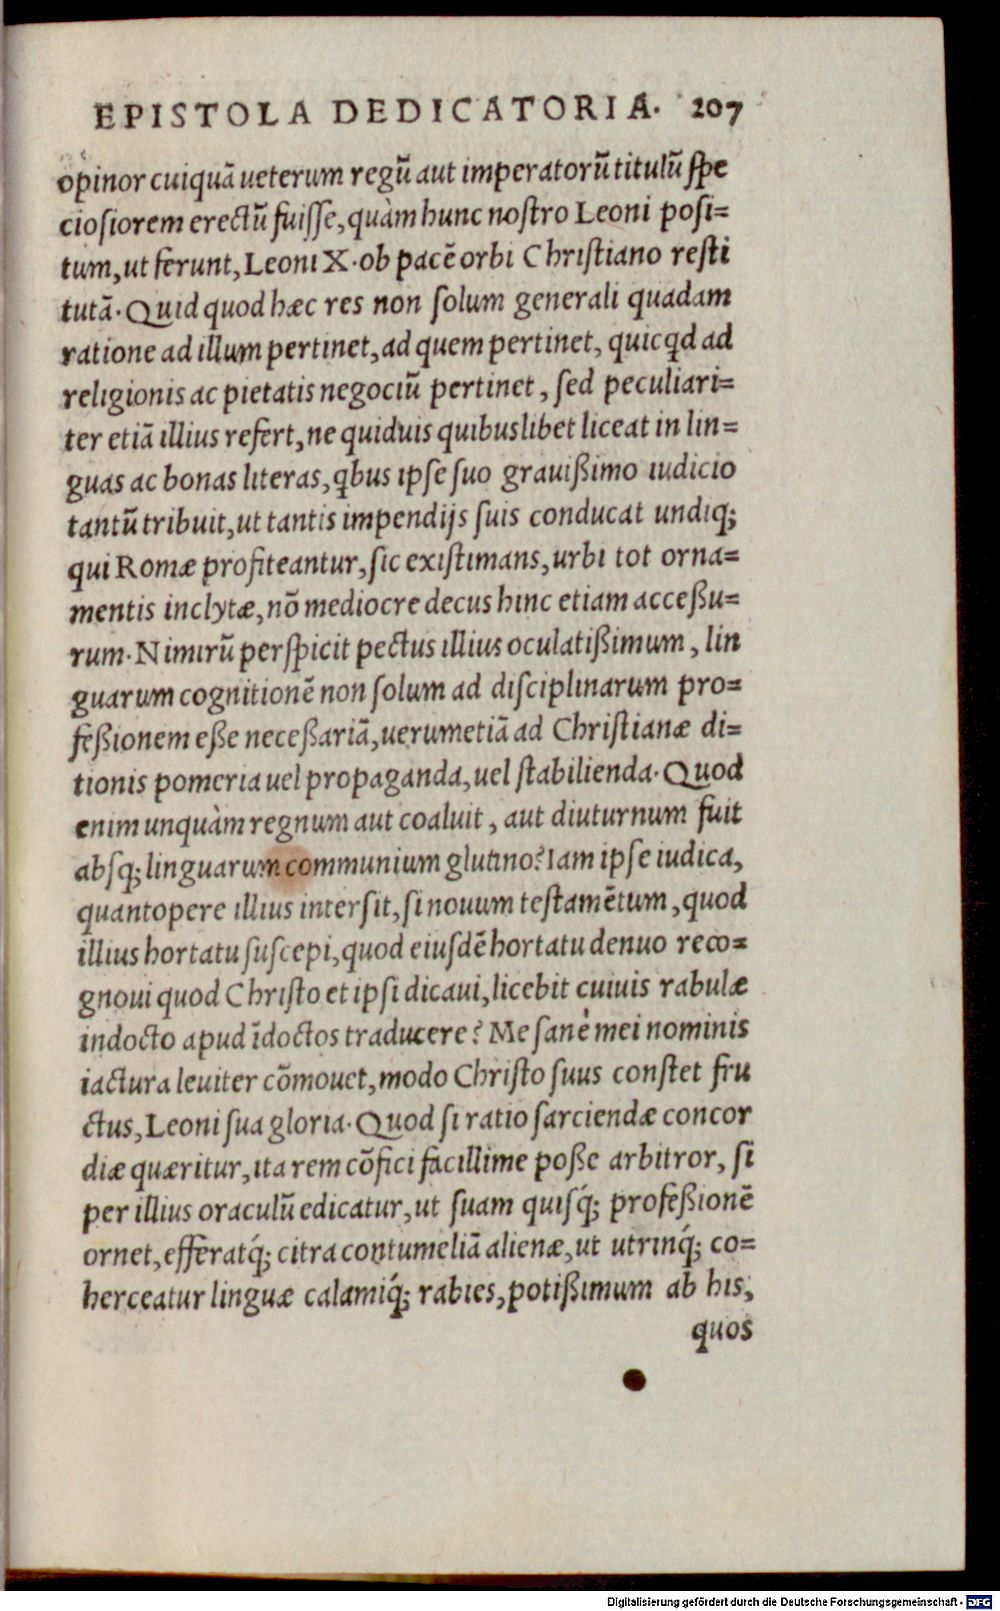 EPISTOLA DEDICATORIA. 207
opinor cuiquã ueterum regũ aut imperatorũ titulũ spe
ciosiorem erectũ fuisse, quàm hunc nostro Leoni posi=
tum, ut ferunt, Leoni X. ob pacẽ orbi Christiano resti
tutã. Quid quod hæc res non solum generali quadam
ratione ad illum pertinet, ad quem pertinet, quicqd ad
religionis ac pietatis negociũ pertinet, sed peculiari=
ter etiã illius refert, ne quiduis quibuslibet liceat in lin=
guas ac bonas literas, qbus ipse suo grauißimo iudicio
tantũ tribuit, ut tantis impendijs suis conducat undiq;
qui Romæ profiteantur, sic existimans, urbi tot orna=
mentis inclytæ, nõ mediocre decus hinc etiam acceßu=
rum. Nimirũ perspicit pectus illius oculatißimum, lin
guarum cognitionẽ non solum ad disciplinarum pro=
feßionem eße neceßariã, uerumetiã ad Christianæ di=
tionis pomeria uel propaganda, uel stabilienda. Quod
enim unquàm regnum aut coaluit, aut diuturnum fuit
absq; linguarum communium glutino? Iam ipse iudica,
quantopere illius intersit, si nouum testamẽtum, quod
illius hortatu suscepi, quod eiusdẽ hortatu denuo reco=
gnoui quod Christo et ipsi dicaui, licebit cuiuis rabulæ
indocto apud ĩdoctos traducere? Me sanè mei nominis
iactura leuiter cõmouet, modo Christo suus constet fru
ctus, Leoni sua gloria. Quod si ratio sarciendæ concor
diæ quæritur, ita rem cõfici facillime poße arbitror, si
per illius oraculũ edicatur, ut suam quisq́; profeßionẽ
ornet, efferatq́; citra contumeliã alienæ, ut utrinq́; co=
herceatur linguæ calamiq́; rabies, potißimum ab his,
quos
Digitalisierung gefördert durch die Deutsche Forschungsgemeinschaft - DFG